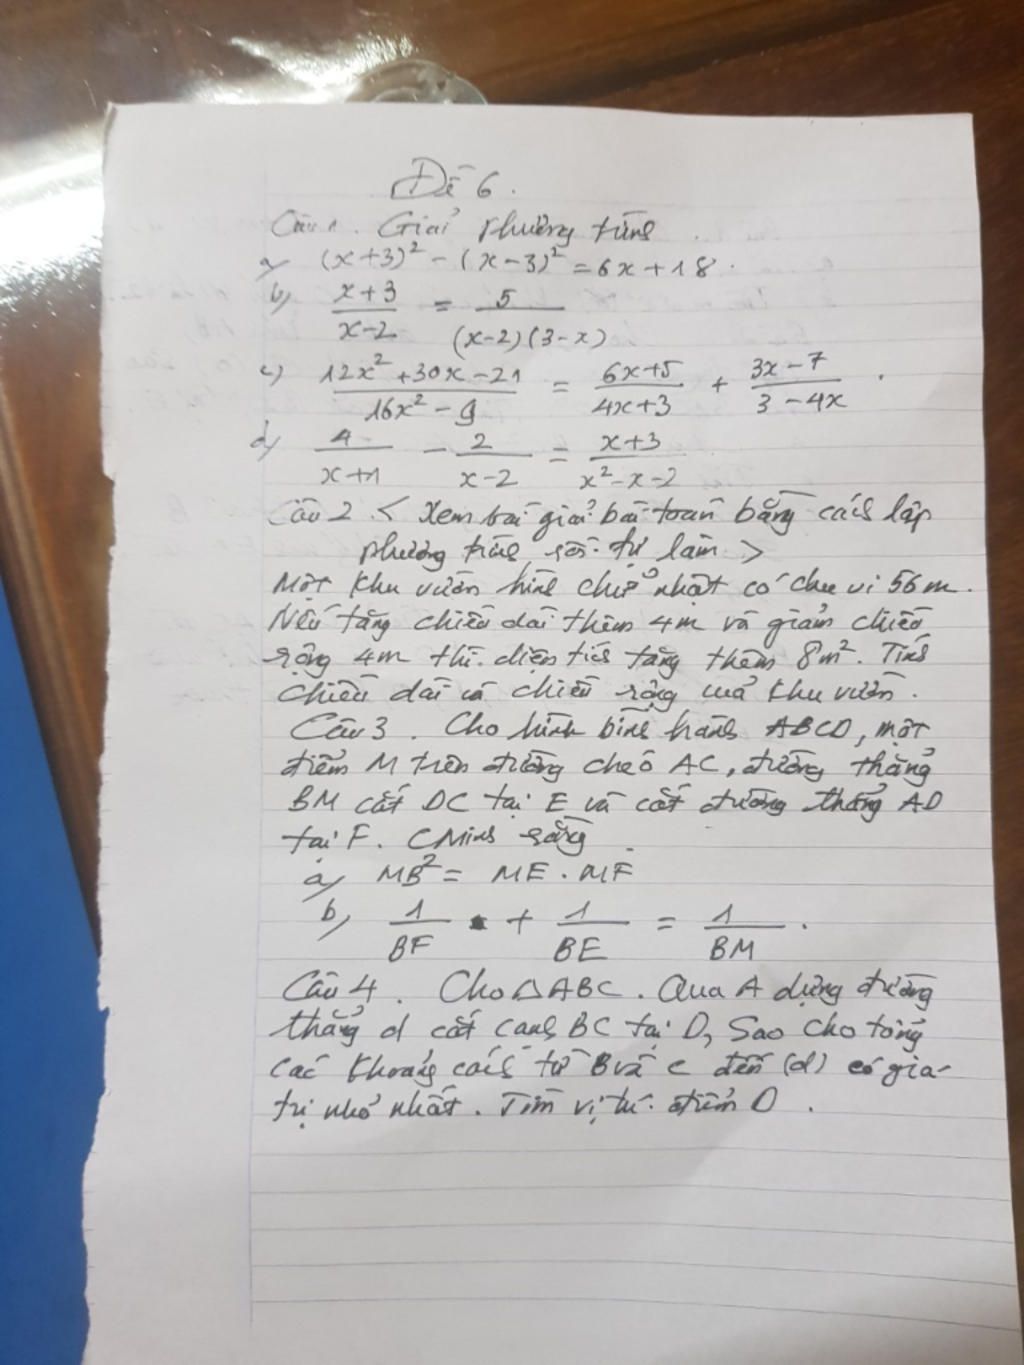 Đề 6.
Câu 1. Giải phương trình.
a) (x+3)² - (x-3)² = 6x+18.
b) \frac{x+3}{x-2} = \frac{5}{(x-2)(3-x)}
c) \frac{12x²+30x-21}{16x²-9} = \frac{6x+5}{4x+3} + \frac{3x-7}{3-4x}.
d) \frac{4}{x+1} - \frac{2}{x-2} = \frac{x+3}{x²-x-2}
Câu 2 < Xem bài giải bài toán bằng cách lập
phương trình rồi tự làm >
Một khu vườn hình chữ nhật có chu vi 56m.
Nếu tăng chiều dài thêm 4m và giảm chiều
rộng 4m thì diện tích tăng thêm 8m². Tính
chiều dài và chiều rộng của khu vườn.
Câu 3. Cho hình bình hành ABCD, một
điểm M trên đường chéo AC, đường thẳng
BM cắt DC tại E và cắt đường thẳng AD
tại F. CMinh rằng
a) MB² = ME . MF
b) \frac{1}{BF} + \frac{1}{BE} = \frac{1}{BM}.
Câu 4. Cho △ABC. Qua A dựng đường
thẳng d cắt cạnh BC tại D, Sao cho tổng
các khoảng cách từ B và C đến (d) có giá
trị nhỏ nhất. Tìm vị trí điểm D.